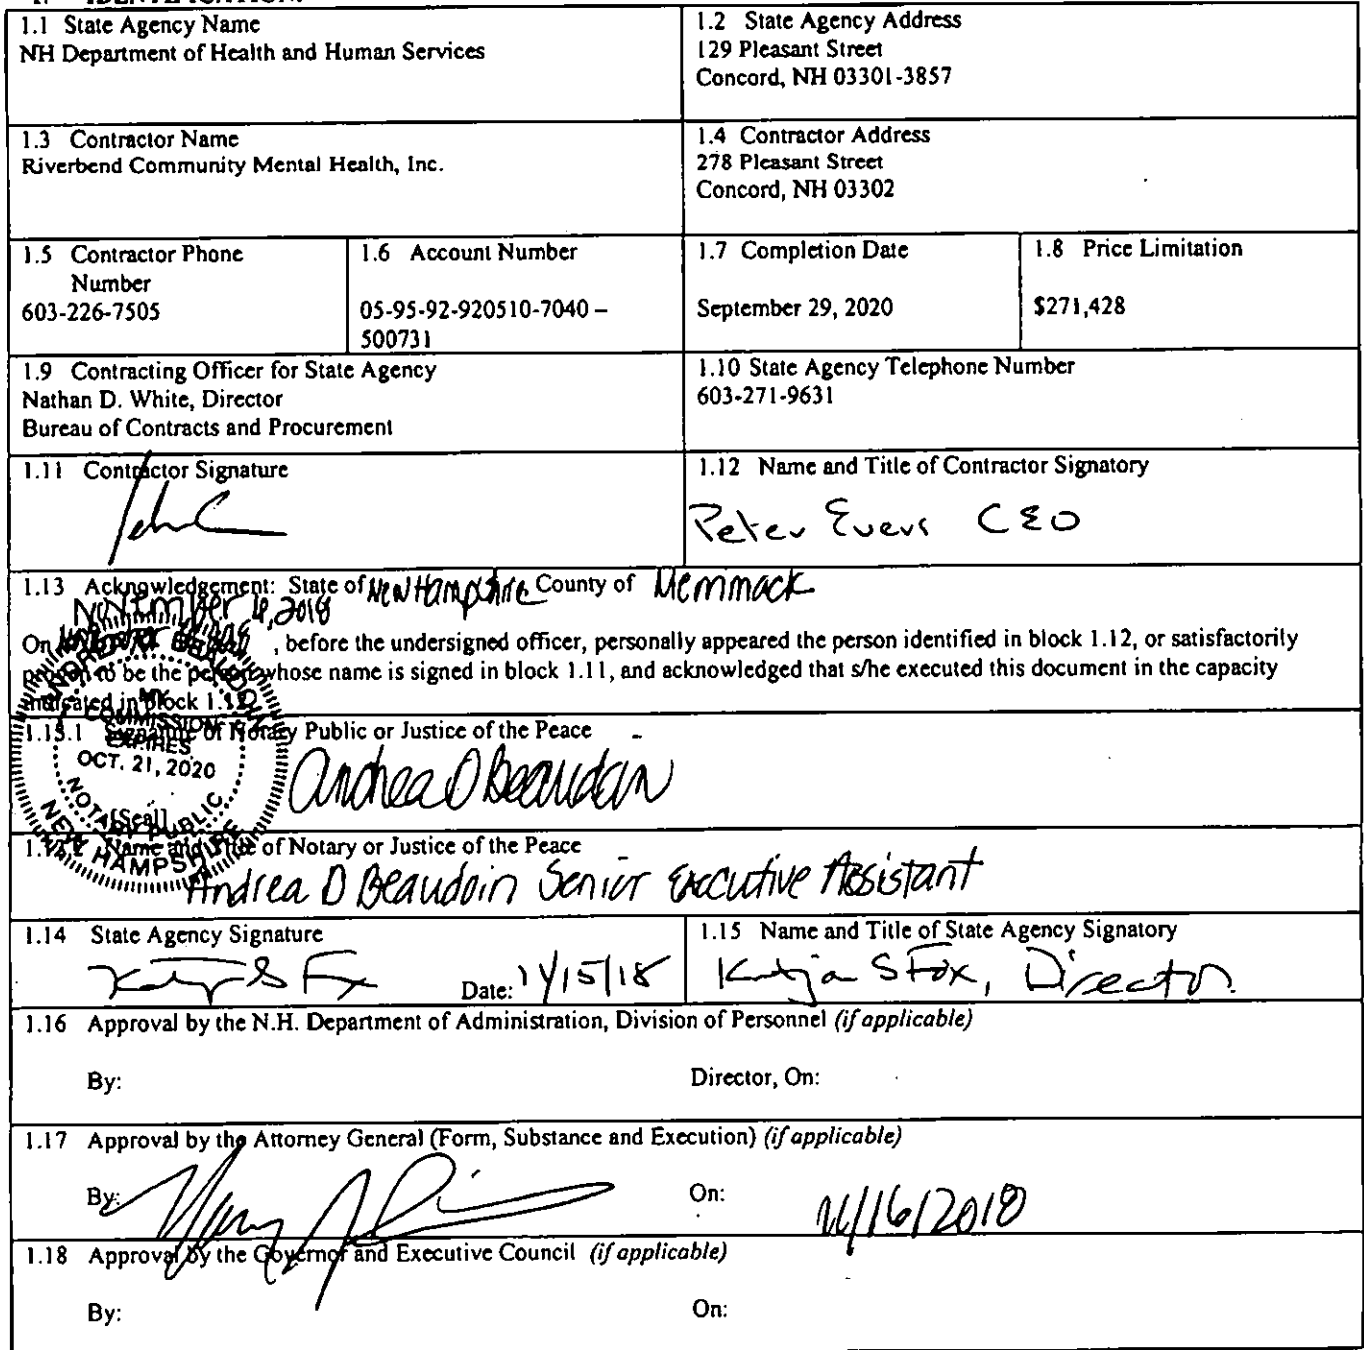 1.1 State Agency Name
NH Department of Health and Human Services
1.2 State Agency Address
129 Pleasant Street
Concord, NH 03301-3857
1.3 Contractor Name
Riverbend Community Mental Health, Inc.
1.4 Contractor Address
278 Pleasant Street
Concord, NH 03302
1.5 Contractor Phone
Number
603-226-7505
1.6 Account Number
05-95-92-920510-7040 –
500731
1.7 Completion Date
September 29, 2020
1.8 Price Limitation
$271,428
1.9 Contracting Officer for State Agency
Nathan D. White, Director
Bureau of Contracts and Procurement
1.10 State Agency Telephone Number
603-271-9631
1.11 Contractor Signature
1.12 Name and Title of Contractor Signatory
Peter Evers CEO
1.13 Acknowledgement: State of New Hampshire County of Merrimack
November 6, 2018
On , before the undersigned officer, personally appeared the person identified in block 1.12, or satisfactorily
proven to be the person whose name is signed in block 1.11, and acknowledged that s/he executed this document in the capacity
indicated in block 1.12.
1.13.1 Signature of Notary Public or Justice of the Peace
MY
COMMISSION
EXPIRES
OCT. 21, 2020
NOTARY PUBLIC
NEW HAMPSHIRE
Andrea D Beaudoin
[Seal]
1.13.2 Name and Title of Notary or Justice of the Peace
Andrea D Beaudoin Senior Executive Assistant
1.14 State Agency Signature
Date: 11/15/18
1.15 Name and Title of State Agency Signatory
Katja S Fox, Director
1.16 Approval by the N.H. Department of Administration, Division of Personnel (if applicable)
By:
Director, On:
1.17 Approval by the Attorney General (Form, Substance and Execution) (if applicable)
By:
On: 11/16/2018
1.18 Approval by the Governor and Executive Council (if applicable)
By:
On: